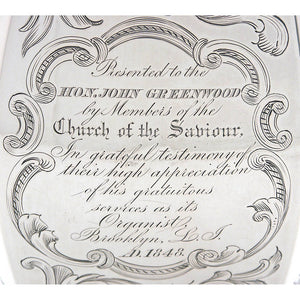 Presented to the
HON. JOHN GREENWOOD
by Members of the
Church of the Saviour,
In grateful testimony of
their high appreciation
of his gratuitous
services as its
Organist,
Brooklyn, L. I.
A.D. 1848.